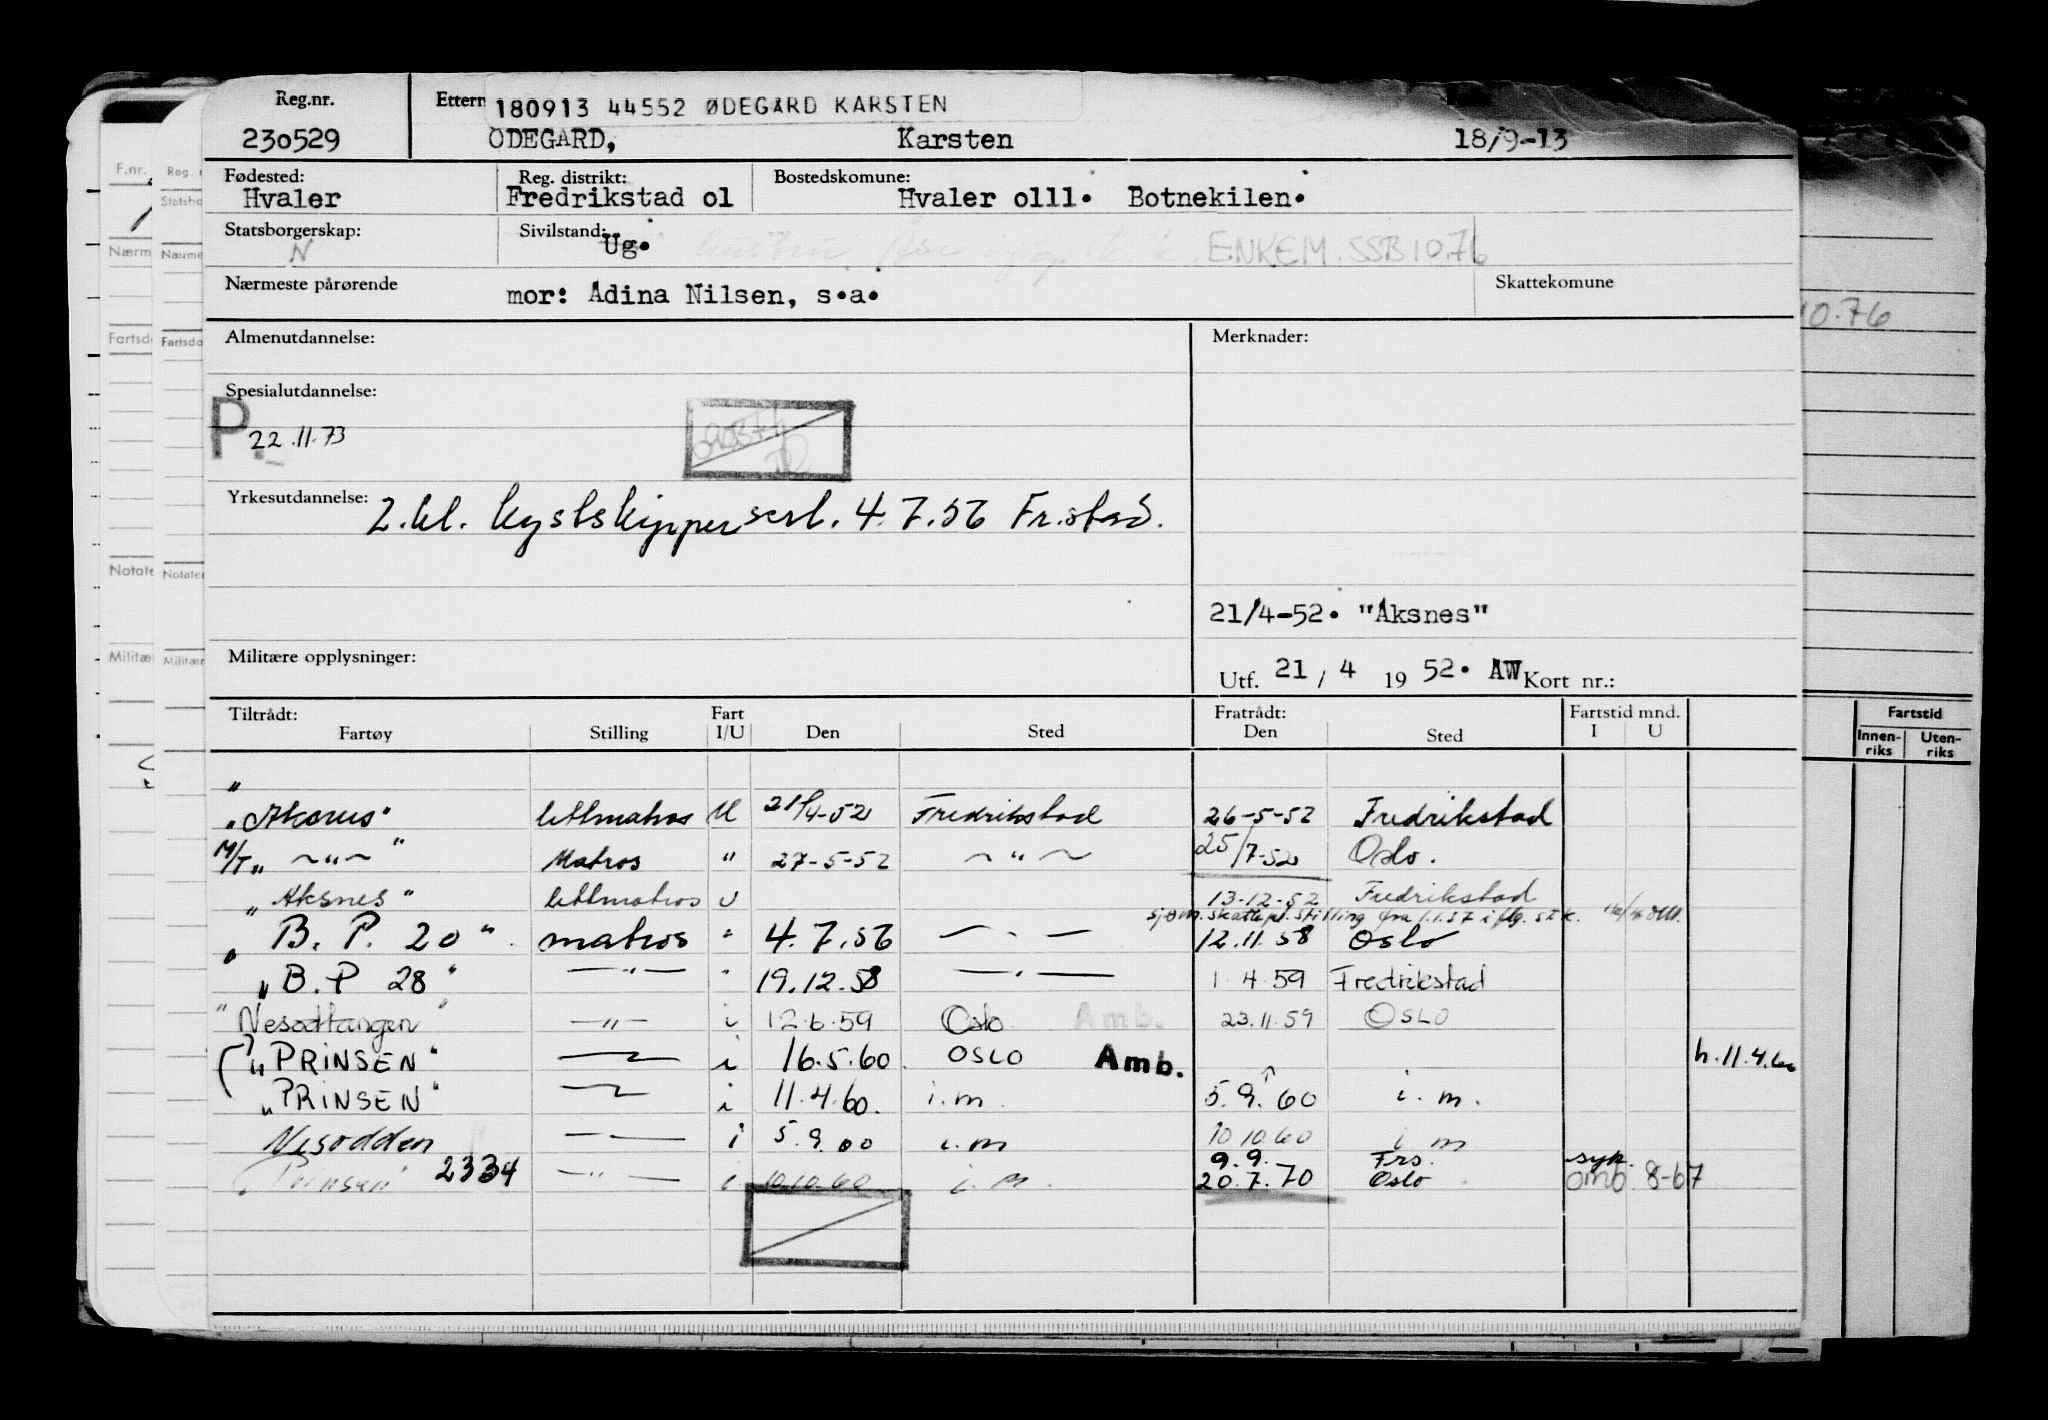 Reg.nr. Ettern 180913 44552 ØDEGÅRD KARSTEN
230529 ØDEGÅRD, Karsten 18/9-13
Fødested: Reg. distrikt: Bostedskomune:
Hvaler Fredrikstad ol Hvaler olll. Botnekilen.
Statsborgerskap: Sivilstand:
N Ug. ENKEM. SSB 10.76
Nærmeste pårørende mor: Adina Nilsen, s.a. Skattekomune
10.76
Almenutdannelse: Merknader:
Spesialutdannelse:
P. 22.11.73
Yrkesutdannelse: 2.kl. kystskippersert. 4.7.56 Fr.stad.
21/4-52. "Aksnes"
Militære opplysninger:
Utf. 21 / 4 19 52. AW Kort nr.:
Tiltrådt: Fart Fratrådt: Fartstid mnd. Fartstid
Fartøy Stilling I/U Den Sted Den Sted I U Innen-riks Uten-riks
"
"Akarus" lettmatros U 21/4-52 Fredrikstad 26-5-52 Fredrikstad
M/T " — " — " Matros " 27-5-52 — " — 25/7-52 Oslo.
"Aksnes" lettmatros U 13-12-52 Fredrikstad
sjøm. skattepl. stilling fra 1.1.57 iflg. st.k.
"B. P. 20". matros " 4.7.56 — " — 12.11.58 Oslo
"B.P 28" — " — " 19.12.58 — " — 1.4.59 Fredrikstad
"Nesodtangen" — " — i 12.6.59 Oslo Amb. 23.11.59 OSLO
"PRINSEN" — i 16.5.60 OSLO Amb. h.11.4.60
"PRINSEN" — i 11.4.60. i.m. 5.9.60 i.m.
Nesodden — i 5.9.60 i.m 10.10.60 i m
9.9. Frs. syk.
"Prinsen" 2334 — " — i 10.10.60 i.m. 20.7.70 Oslo omb. 8-67
F.nr.
Reg. n
Statsbo
Nærm
Nærme
Fartsd
Fartsdo
Notate
Notater
Militæ
Militær